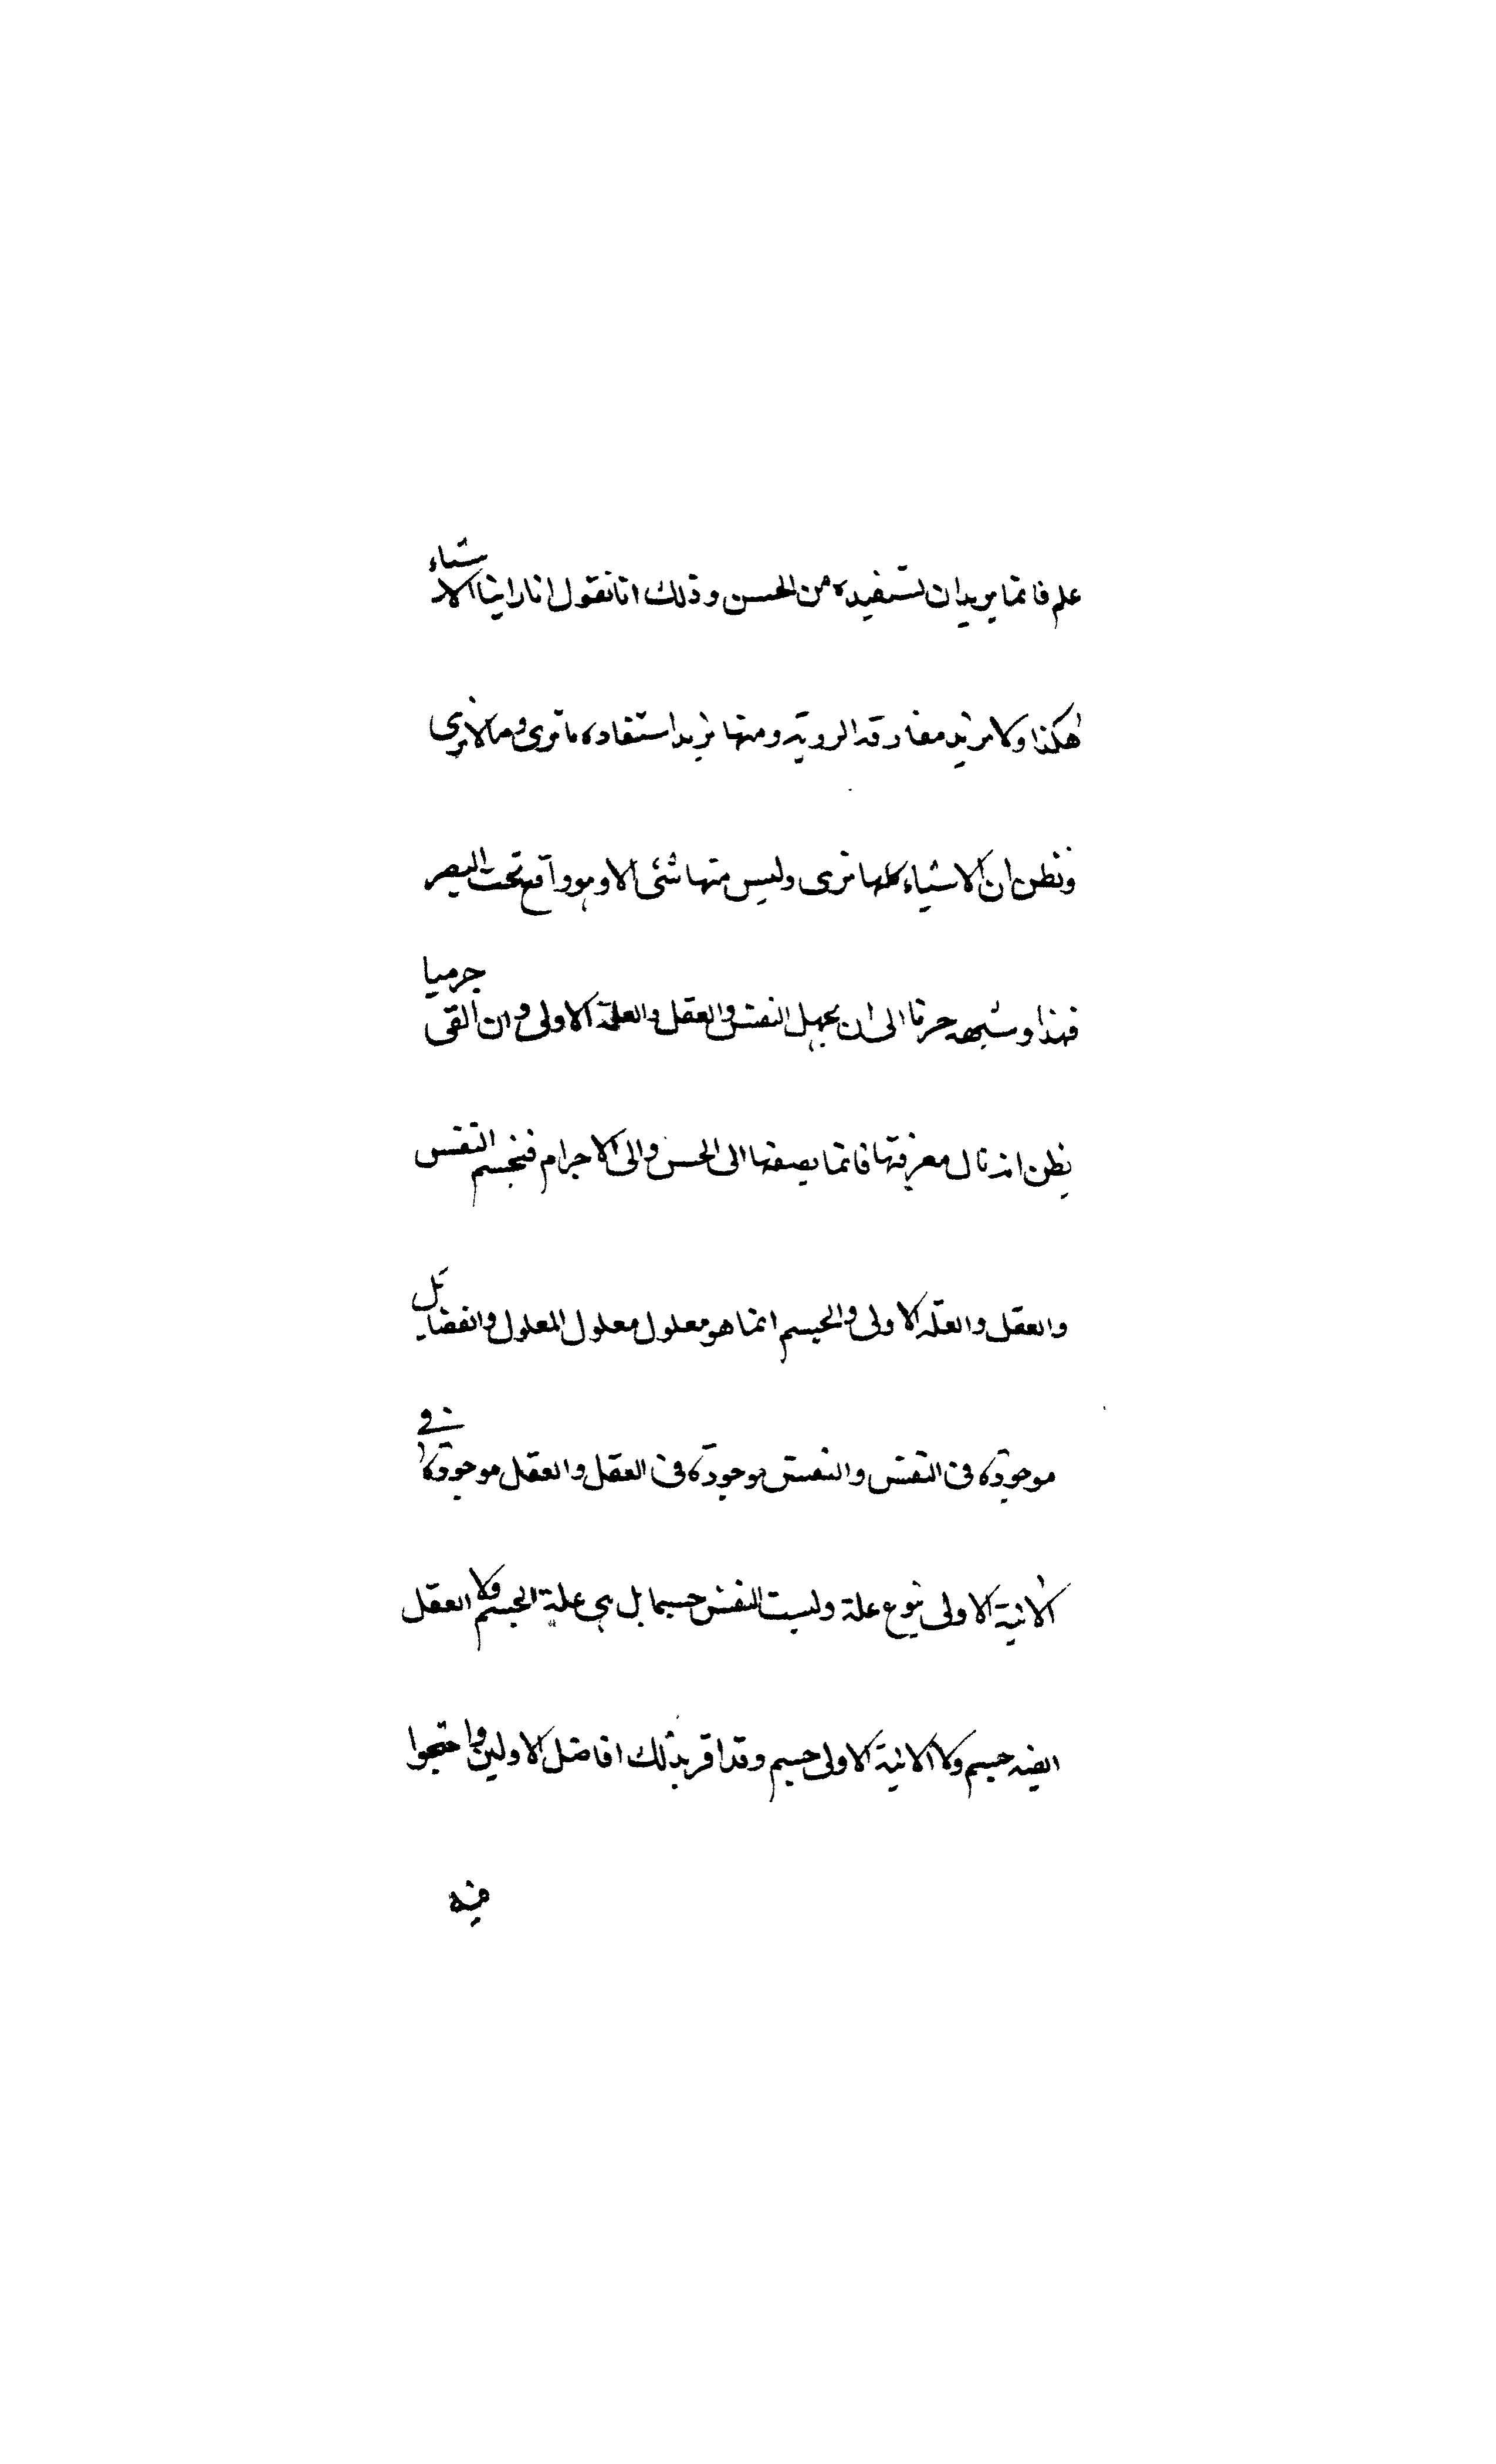 علم فانما يريد ان تستفيده من الحسن وذلك انا نقول انا راينا الاشياء
هكذا ولا نريد مفارقه الرويه ومنها نريد استفاده ما نرى وما لا نرى
ونظن ان الاشياء كلها نرى وليس منها شئى الا وهو واقع تحت البصر
فهذا وشبهه جرنا الى ان نجهل النفس والعقل والعلة الاولى وان القى جرميا
يظن انه نال معرفتها فانما يصفها الى الحس والى الاجرام فنجسم النفس
والعقل والعله الاولى والجسم انما هو معلول معلول المعلول والفضايل
موجوده فى النفس والنفس موجوده فى العقل والعقل موجودة فى
الانية الاولى نبوع علة وليست النفس جسما بل هى علة الجسم ولا العقل
ايضه جسم ولا الانية الاولى جسم وقد اقر بذلك افاضل الاولين واحتجوا
فيه